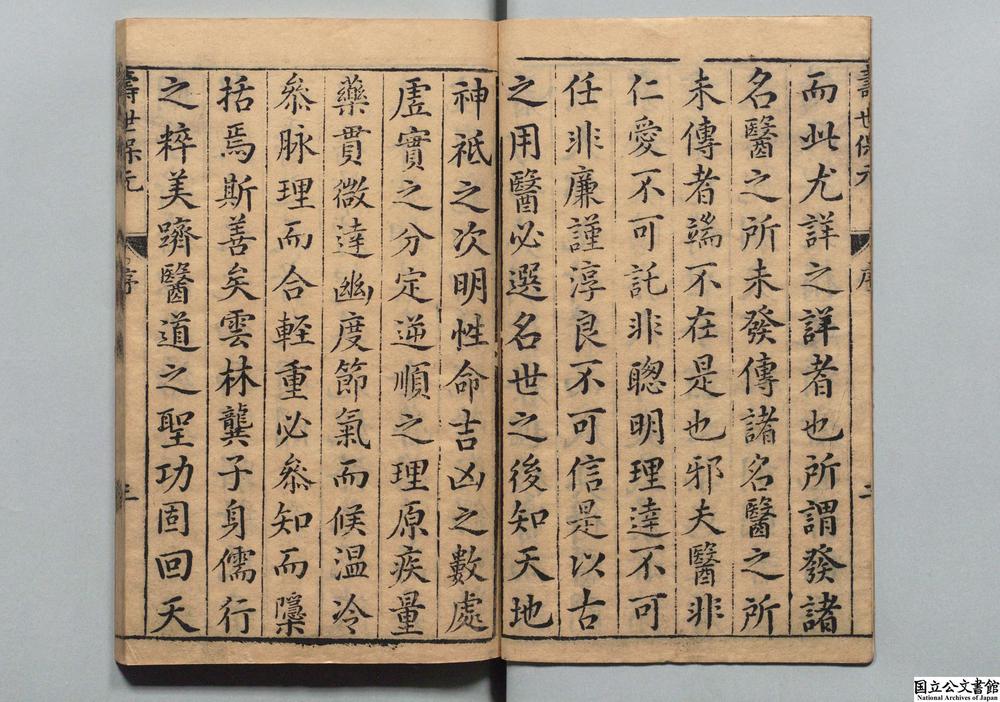 壽世保元 序 二
而此尤詳之詳者也所謂發諸
名醫之所未發傳諸名醫之所
未傳者端不在是也邪夫醫非
仁愛不可託非聰明理達不可
任非廉謹淳良不可信是以古
之用醫必選名世之後知天地
神祇之次明性命吉凶之數處
虛實之分定逆順之理原疾量
藥貫微達幽度節氣而候温冷
叅脉理而合輕重必叅知而隱
括焉斯善矣雲林龔子身儒行
之粹美躋醫道之聖功固回天
壽世保元 序 三
国立公文書館
National Archives of Japan